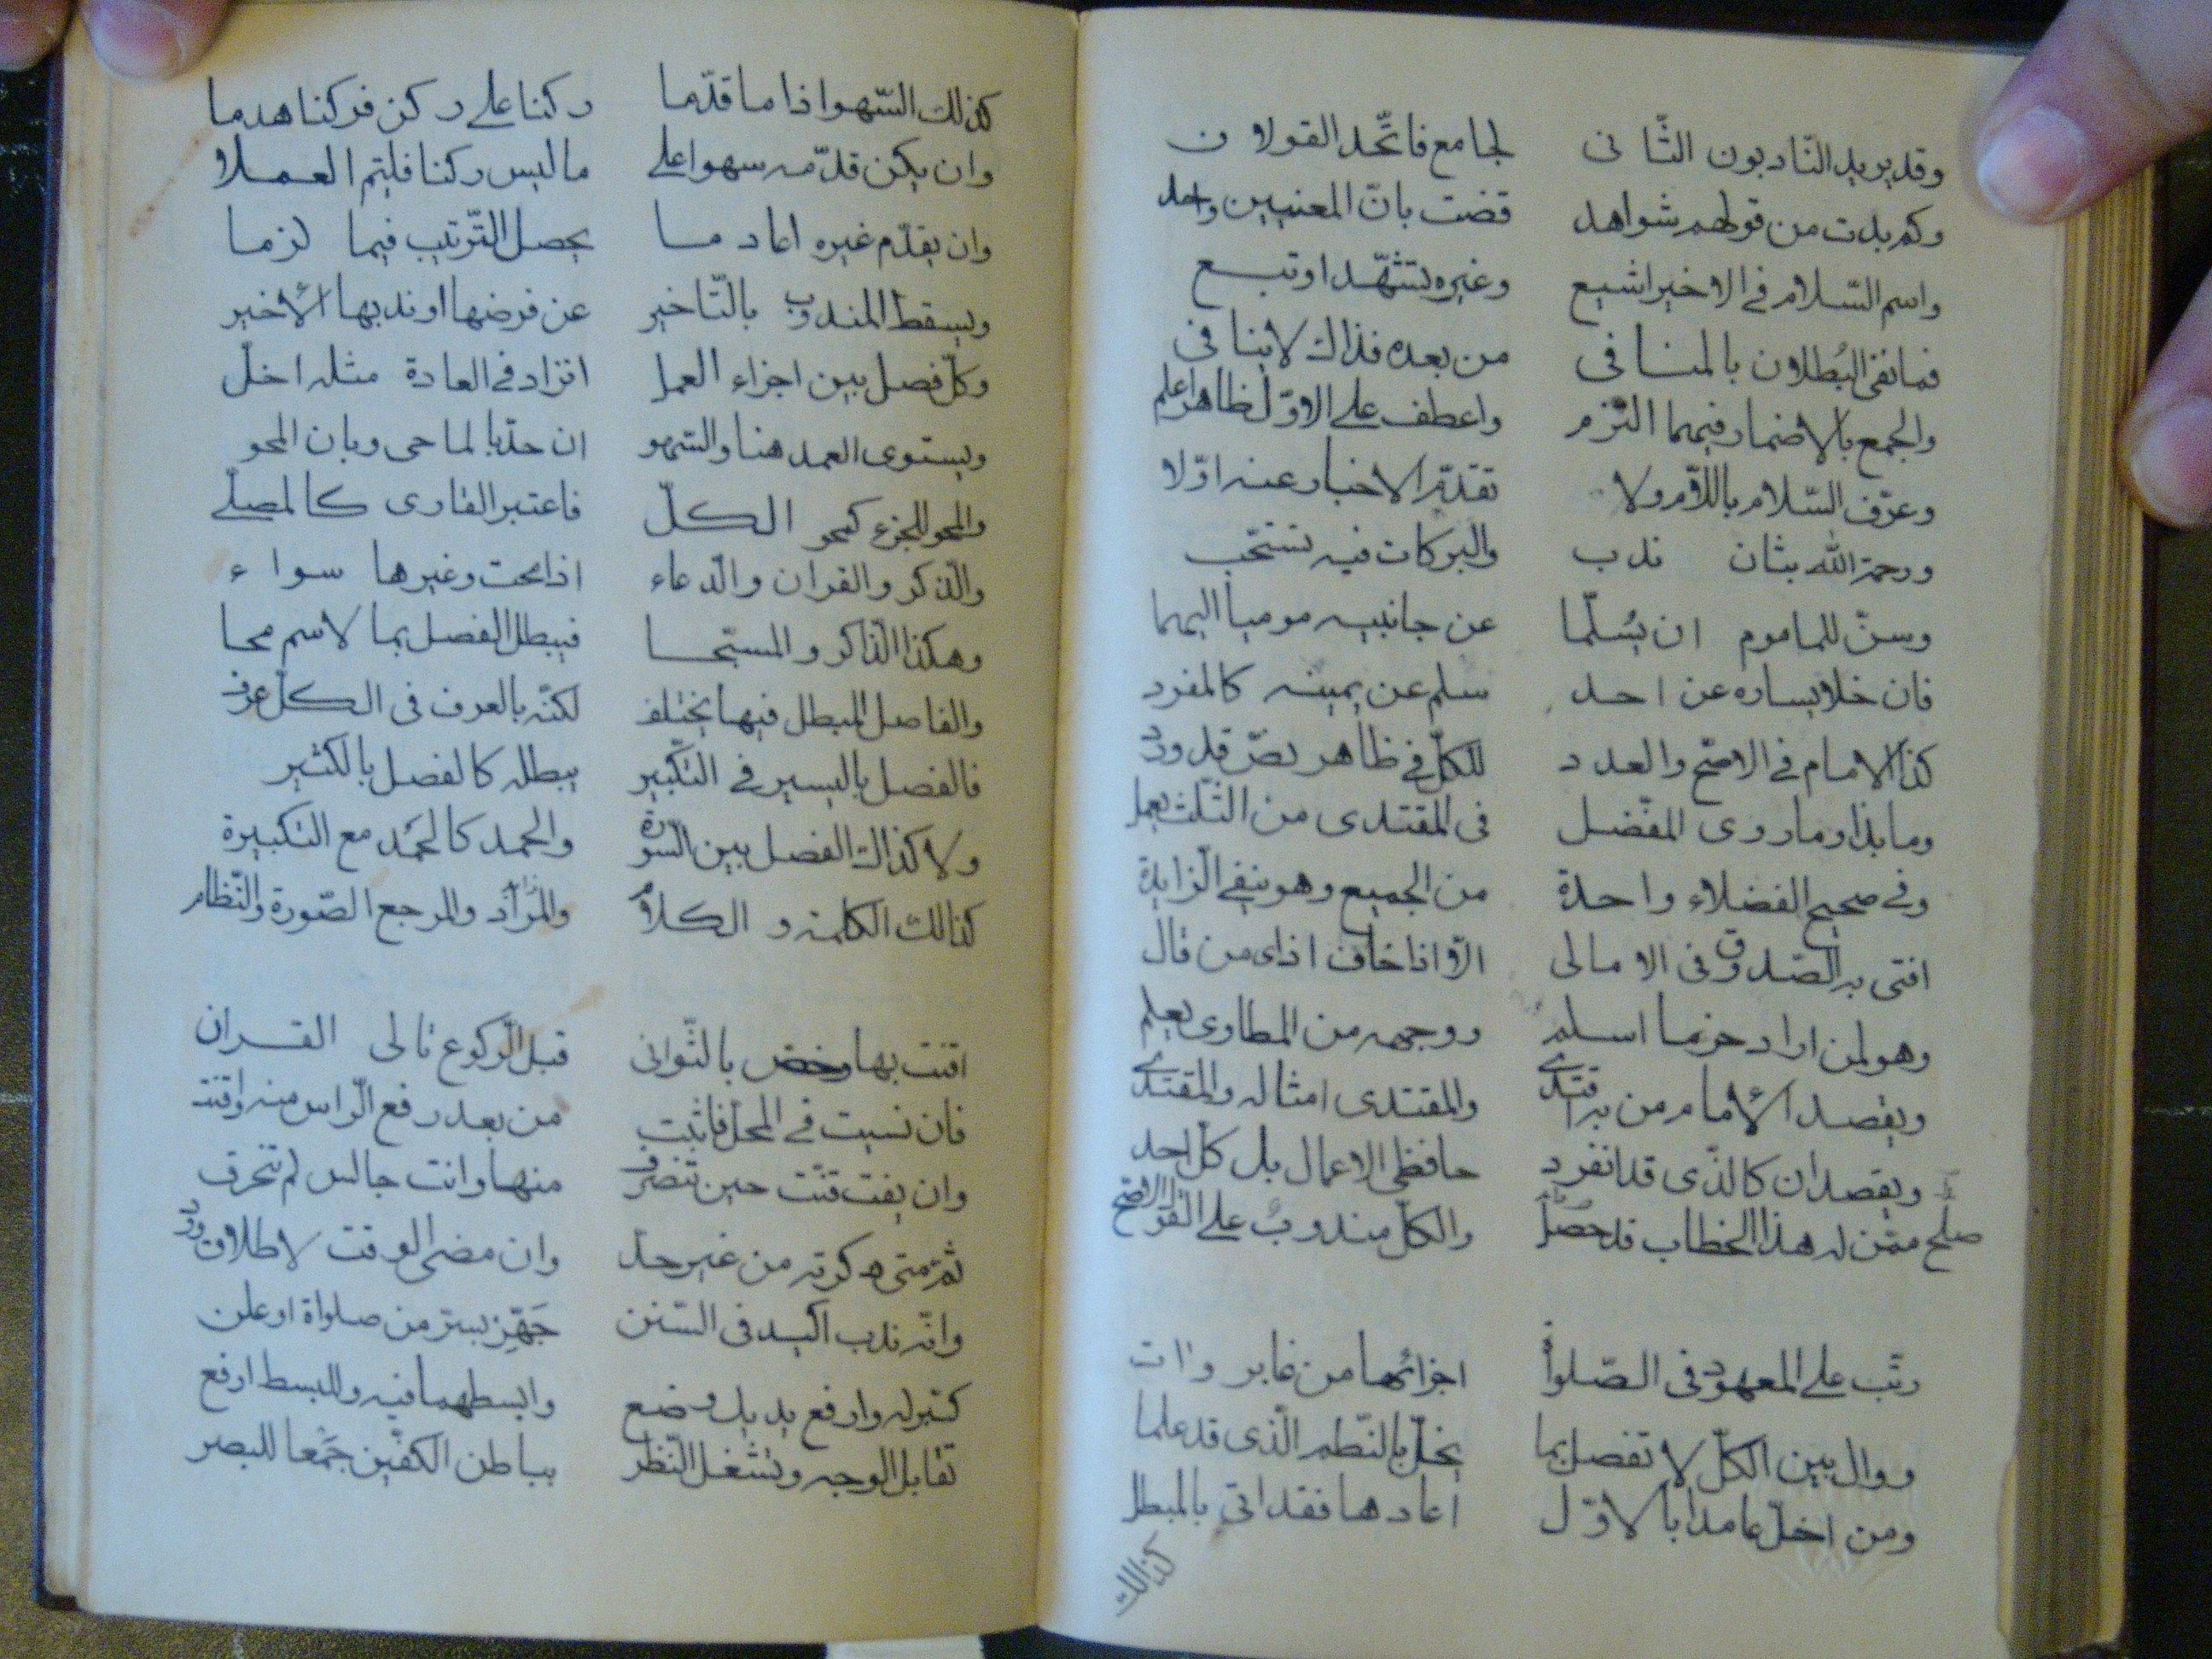 وقد يريد النادبون الثانی لجامع فاتّحد القولان
وكم بدت من قولهم شواهد قضت بانّ المعنيين واحد
واسم السّلام فی الاخير اشيع وغيره تشهّد او تبع
فما نفی البُطلان بالمنافی من بعده فذاك لا ينافی
والجمع بالاضمار فيهما التزم واعطف علی الاوّل ظاهرا علم
وعرّف السّلام باللّام ولا تقدّم الاخبار عنه اوّلا
ورحمة الله بثان ندب والبركات فيه تستحّب
وسنّ للماموم ان يُسلّما عن جانبيه موميا اليهما
فان خلا يساره عن احد سلم عن يمينه كالمفرد
كذا الامام فی الاصّح والعدد للكلّ فی ظاهر نصّ قد ورد
وما بذا وما روی المفّضل فی المقتدی من الثّلث يعمل
وفی صحيح الفضلاء واحدة من الجميع وهو ينفی الزّايدة
افتی به الصّدوق فی الامالی الّا اذا خاف اذای من قال
وهو لمن اراد حزما اسلم ووجهه من المطاوی يعلم
ويقصد الأمام من به اقتدی والمقتدی امثاله والمقتدی
ويقصدان كالّذی قد انفرد حافظی الاعمال بل كلّ احد
صلح ممّن له هذا الخطاب قد حصل والكلّ مندوبٌ علی القول الاصّح
رتّب علی المعهود فی الصّلواة اجزائها من غابر وات
ووال بين الكلّ لا تفصل بما يخلّ بالنّظم الّذی قد علما
ومن اخلّ عامدا بالاوّل اعادها فقد اتی بالمبطل
كذلك
كذلك السّهو اذا ما قدّما ركنا علی ركن فركنا هدما
وان يكن قدّمه سهوا علی ما ليس ركنا فليتم العملا
وان يقدّم غيره اعاد ما يحصل التّرتيب فيما لزما
ويسقط المندوب بالتّاخير عن فرضها او ندبها الأخير
وكلّ فصل بين اجزاء العمل ان زاد فی العادة مثله اخلّ
ويستوی العمد هنا والسّهو ان حدّ بالماحی وبان المحو
والمحو للجزء كمحو الكلّ فاعتبر القاری كالمصلّی
والذّكر والقران والدّعاء اذا محت وغيرها سواء
وهكذا الذّاكر والمسبّحا فيبطل الفصل بما لاسم محا
والفاصل المبطل فيها يختلف لكنّه بالعرف فی الكلّ عرف
فالفصل باليسير فی التّكبير يبطله كالفصل بالكثير
ولا كذاك الفصل بين السّورة والحمد كالحمد مع التكبيرة
كذالك الكلمة و الكلام والمراد والمرجع الصّورة والنّظام
اقنت بها وخصّ بالثّوانی قبل الّركوع تالی القران
فان نسيت فی المحلّ فاثبت من بعد رفع الّراس منه واقنت
وان يفت قنّت حين تنصرف منها وانت جالس لم تنحرف
ثمّ متی ذكرته من غير حدّ وان مضی الوقت لاطلاق ورد
وانّه ندب اكيد فی السّنن جَهّز بستر من صلواة او علن
كبّر له وارفع يديك وضع وابسطهما فيه وللبسط ارفع
تقابل الوجه وتشغل النّظر بباطن الكفّين جَمعا للبصر